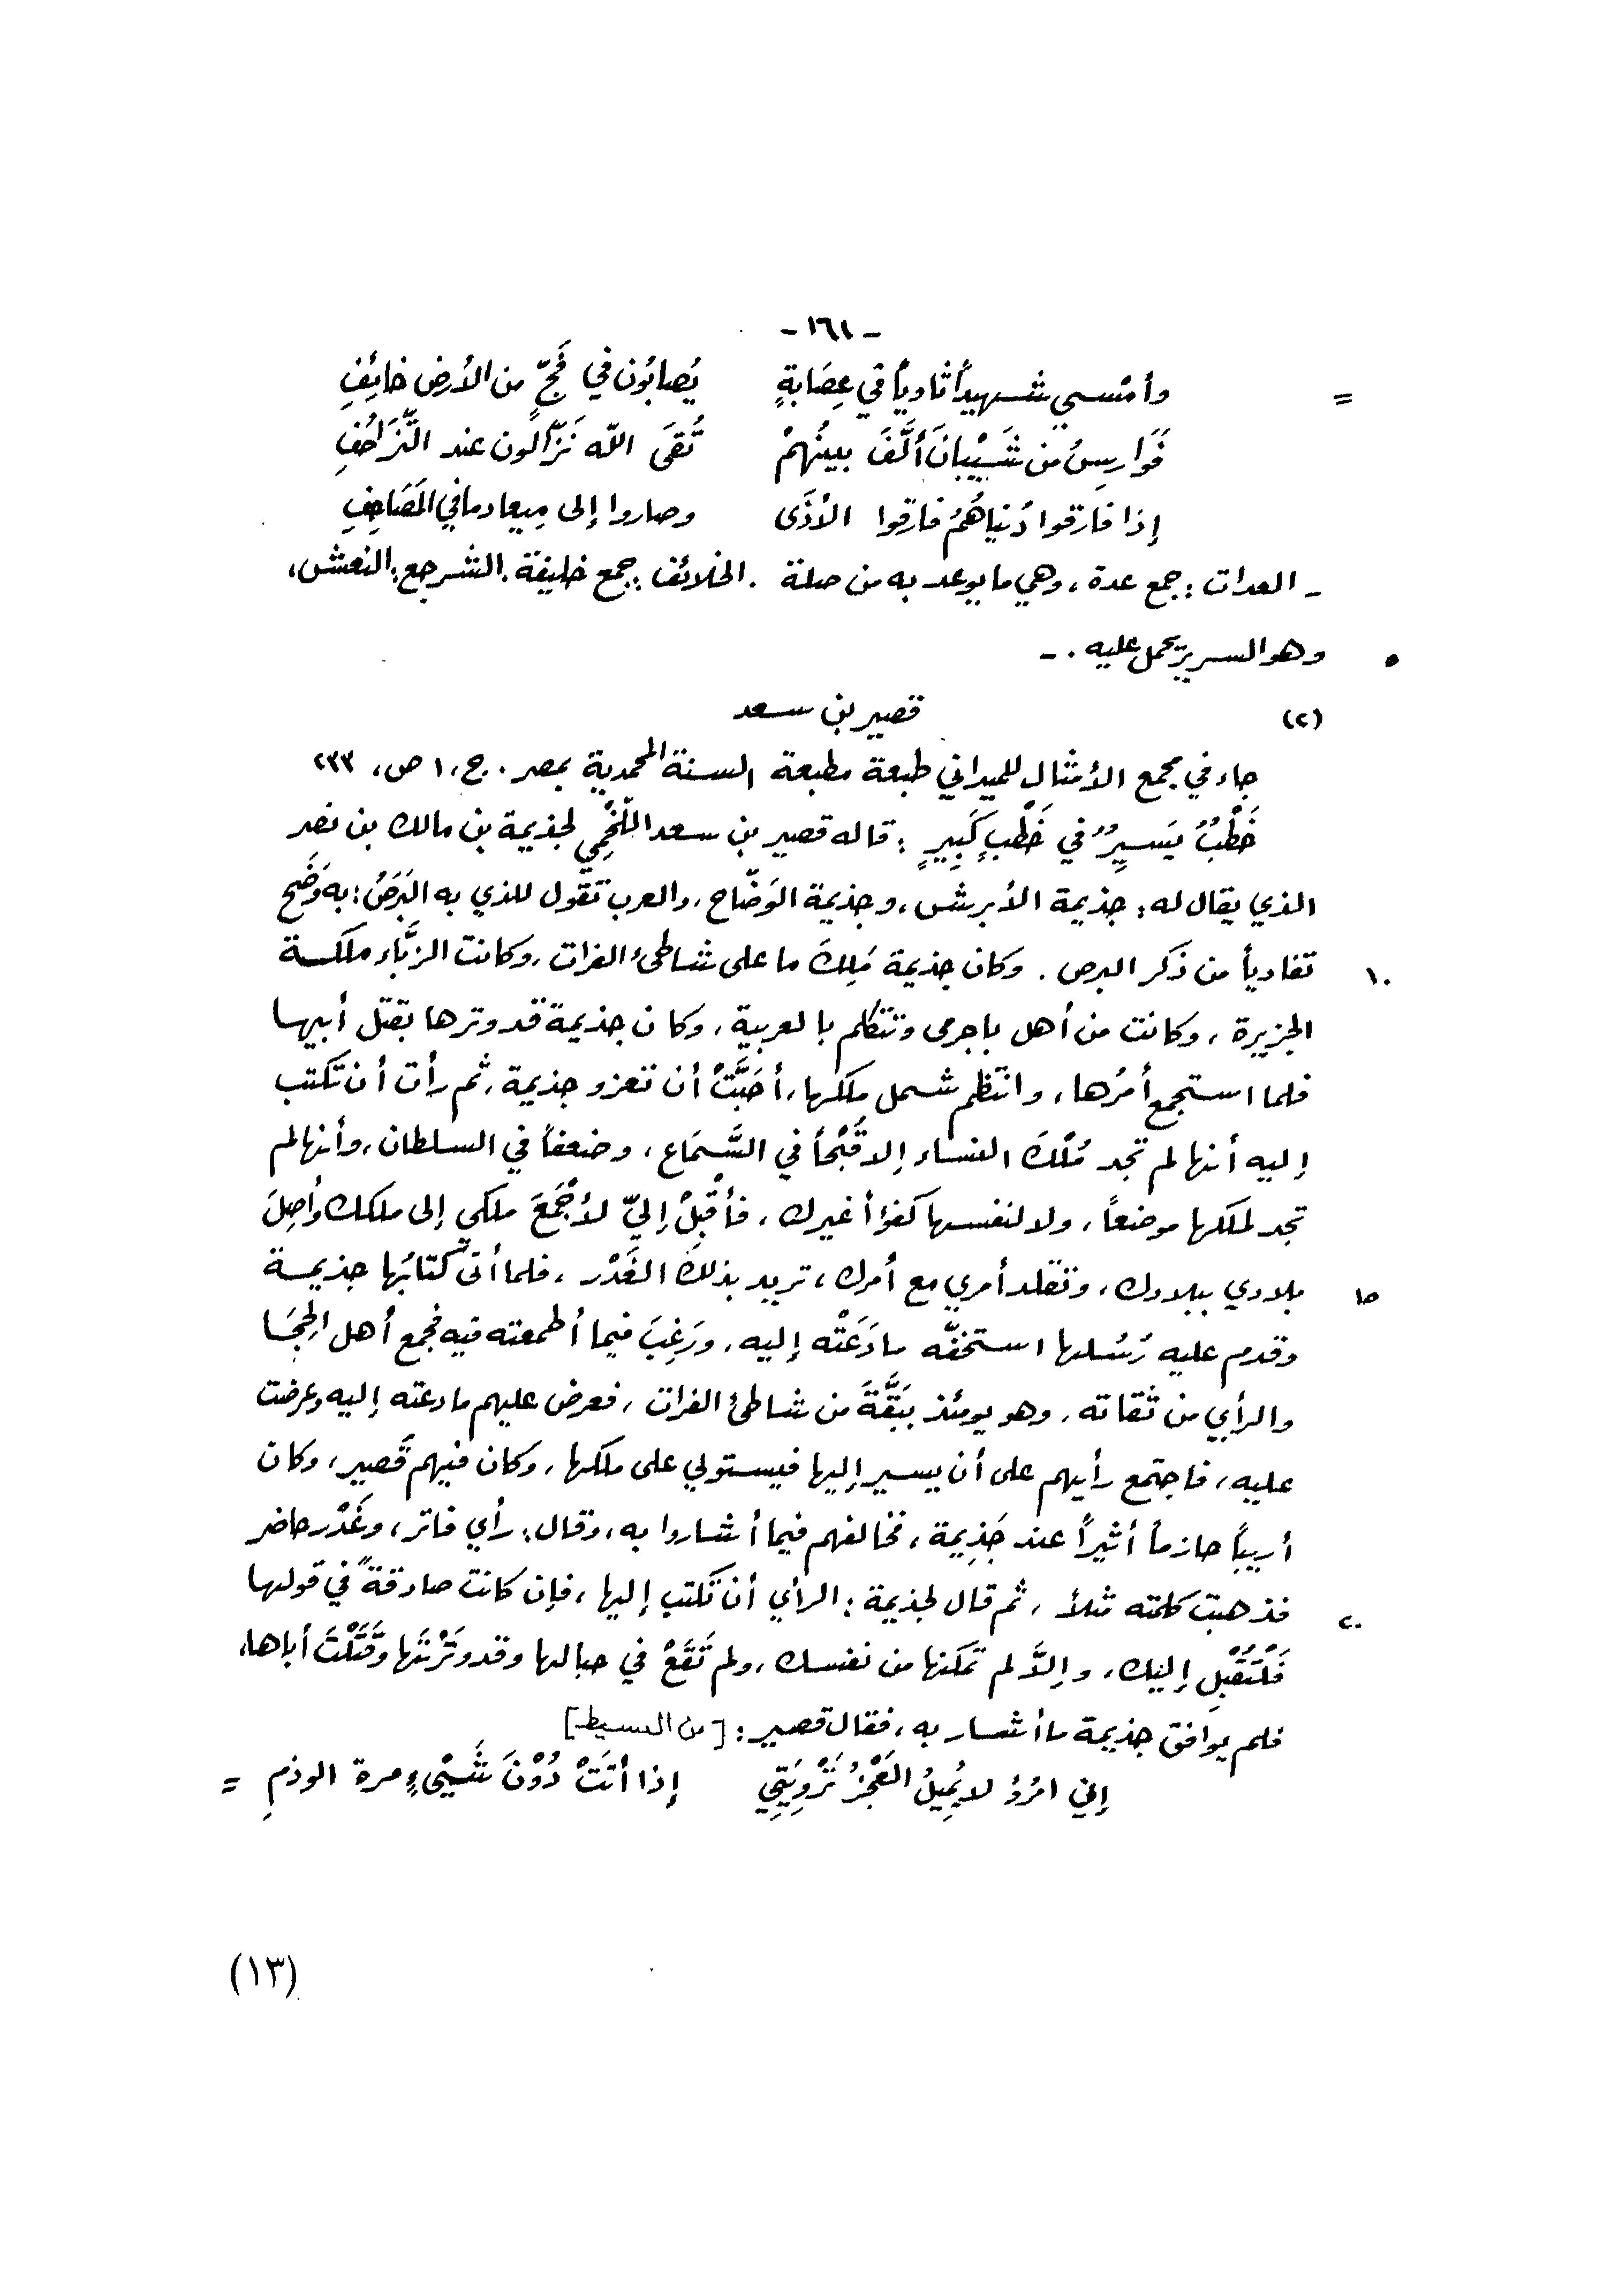 -١٦١-
= وأمْسي شهيداً ثاوياً في عِصَابةٍ يُصابُون في فَجٍّ من الأرض خائِفِ
فَوَارِسُ من شَيْبانَ ألَّفَ بينهُمْ تُقَى اللّه نَزَّالون عند التَّزَاحُفِ
إذا فارقوا دُنياهُمُ فارقوا الأذَى وصاروا إلى مِيعاد ما في المَصَاحِفِ
ـ العدات : جمع عدة ، وهي ما يوعد به من صلة . الخلائف : جمع خليفة . الشرجع : النعش ،
٥ وهو السرير يحمل عليه . ـ
(٢) قصير بن سعد
جاء في مجمع الأمثال للميداني طبعة مطبعة السنة المحمدية بمصر . ج ، ١ ص ، ٢٣٣
خَطْبٌ يَسيرٌ في خَطْبٍ كَبِيرٍ : قاله قصير بن سعد اللّخْمِي لجذيمة بن مالك بن نصر
الذي يقال له : جذيمة الأبرش ، وجذيمة الوَضّاح ، والعرب تقول للذي به البَرَصُ : به وَضَح
١٠ تفادياً من ذكر البرص . وكان جذيمة مَلِكَ ما على شاطئ الفرات ، وكانت الزَّبَّاء ملكة
الجزيرة ، وكانت من أهل باجرمى وتتكلم بالعربية ، وكان جذيمة قد وترها بقتل أبيها
فلما استجمع أمرُها ، وانتظم شمل ملكها ، أحَبَّتْ أن تغزو جذيمة ، ثم رأت أن تكتب
إليه أنها لم تجد مُلْكَ النساء إلا قُبْحاً في السَّمَاع ، وضعفاً في السلطان ، وأنها لم
تجد لملكها موضعاً ، ولا لنفسها كفؤاً غيرك ، فأقْبِلْ إليّ لأجْمَعَ ملكي إلى ملكك وأصِلَ
١٥ بلادي ببلادك ، وتقلد أمري مع أمرك ، تريد بذلك الغَدْر ، فلما أتى كتابُها جذيمة
وقدم عليه رُسُلها استخفّه ما دَعَتْه إليه ، ورَغِبَ فيما أطمعته فيه فجمع أهل الحِجَا
والرأي من ثقاته ، وهو يومئذ ببَقَّةَ من شاطئ الفرات ، فعرض عليهم ما دعته إليه وعرضت
عليه ، فاجتمع رأيهم على أن يسير إليها فيستولي على ملكها ، وكان فيهم قَصير ، وكان
أريباً حازماً أثيراً عند جَذِيمة ، فخالفهم فيما أشاروا به ، وقال : رأي فاتر ، وغَدْر حاضر
٢٠ فذهبت كلمته مثلاً ، ثم قال لجذيمة : الرأي أن تكتب إليها ، فإن كانت صادقةً في قولها
فَلْتُقْبِل إليك ، وإلاَّ لم تمكنها من نفسك ، ولم تَقَعْ في حبالها وقد وَتَرْتَها وَقَتَلْتَ أباها ،
فلم يوافق جذيمة ما أشار به ، فقال قصير : [ من البسيط ]
إني امرُؤٌ لا يُمِيلُ العَجْزُ تَرْوِيَتِي إذا أتَتْ دُوْنَ شَيْيءٍ مرة الوذمِ =
(١٣)